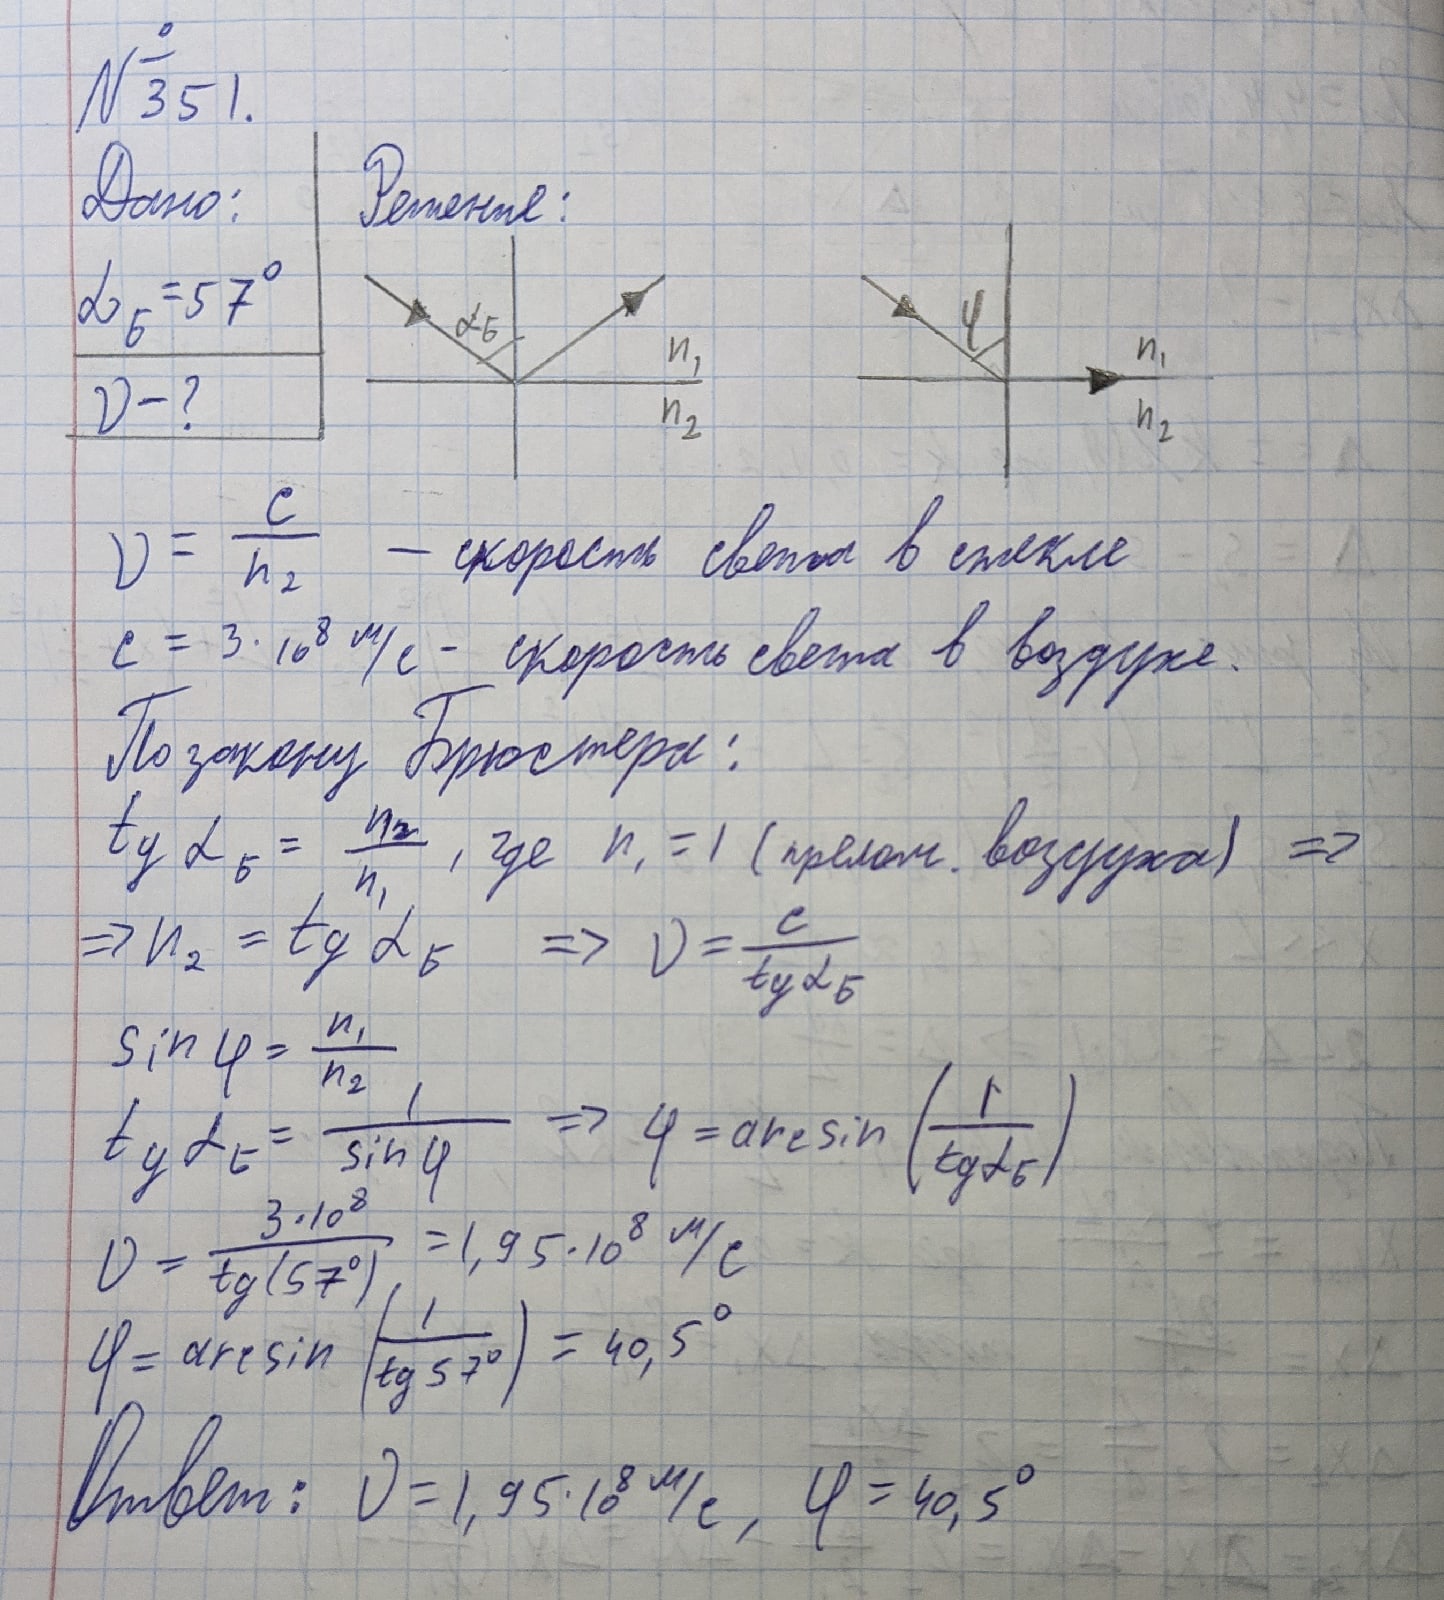 № 351.
Дано:
Решение:
α_Б = 57°
υ - ?
α_Б
n₁
n₂
φ
n₁
n₂
υ = c/n₂ — скорость света в стекле
c = 3·10⁸ м/с - скорость света в воздухе.
По закону Брюстера:
tg α_Б = n₂/n₁, где n₁ = 1 (прелом. воздуха) =>
=> n₂ = tg α_Б => υ = c/tg α_Б
sin φ = n₁/n₂
tg α_Б = 1/sin φ => φ = arcsin (1/tg α_Б)
υ = 3·10⁸/tg(57°) = 1,95·10⁸ м/с
φ = arcsin (1/tg 57°) = 40,5°
Ответ: υ = 1,95·10⁸ м/с, φ = 40,5°